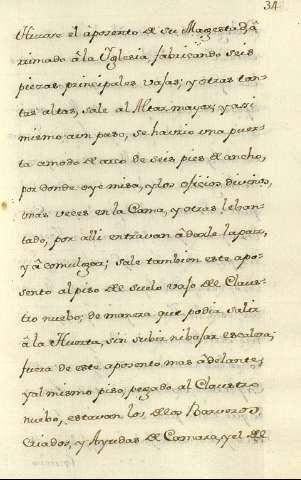 34
Hizose el aposento de su Magestad, â
rrimado â la Yglesia, fabricando seis
piezas principales vajas; y otras tan-
tas altas, sale al Altar mayor; y asi
mismo aun paso, se havrio una puer-
ta amodo de arco de seis pies de ancho,
por donde oyé misa, y los oficios divinos,
unas veces en la Cama, y otras leban-
tado, por alli entravan â darle la paz,
y â comulgar; sale tambien este apo-
sento al piso de suelo vajo del Claus-
tro nuebo; de manera que podia salir
â la Huerta, sin subir ni bajar escalera;
fuera de este aposento mas âdelante,
y al mismo piso, pegado al Claustro
nuebo, estavan los de los Barveros,
Criados, y Ayudas de Camara, y el de